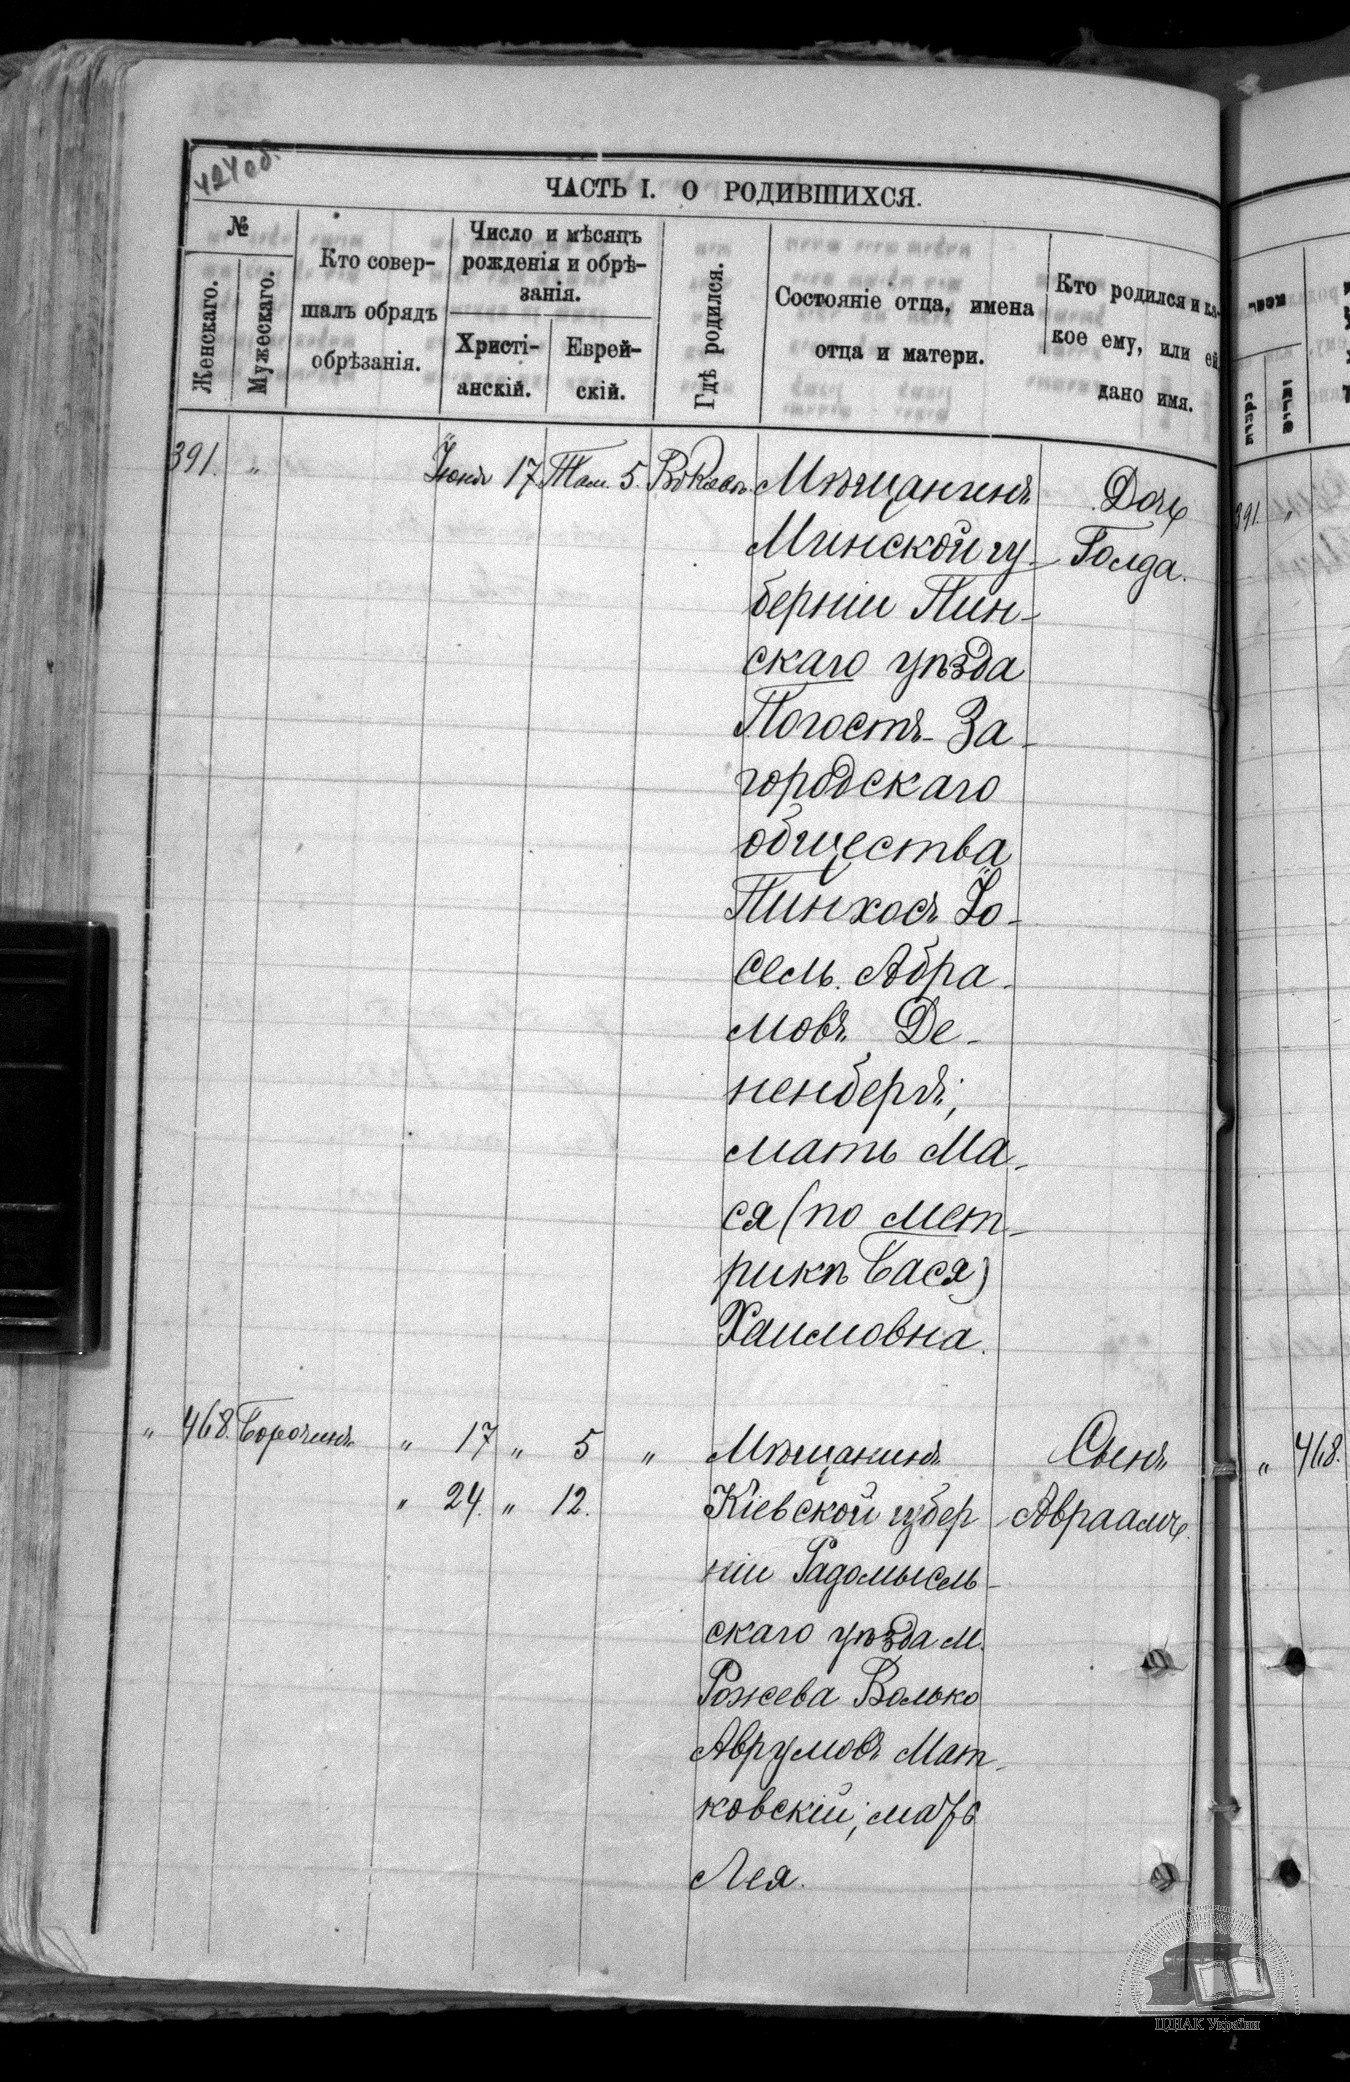 424 об.
ЧАСТЬ I. О РОДИВШИХСЯ.
№
Женскаго.
Мужескаго.
Кто совер-
шалъ обрядъ
обрѣзанія.
Число и мѣсяцъ
рожденія и обрѣ-
занія.
Христі-
анскій.
Еврей-
скій.
Гдѣ родился.
Состояніе отца, имена
отца и матери.
Кто родился и ка-
кое ему, или ей
дано имя.
391. " Іюня 17 Там. 5. Въ Кіевѣ. Мѣщанинъ Дочь
Минской гу- Голда.
берніи Пин-
скаго уѣзда
Погостъ-За-
городскаго
общества
Пинхосъ Іо-
сель Абра-
мовъ Де-
ненбергъ;
мать Ма-
ся (по мет-
рикѣ Бася)
Хаимовна.
" 468. Борочинъ " 17 " 5 " Мѣщанинъ Сынъ " 468.
" 24. " 12. Кіевской губер Авраамъ.
ніи Радомысль-
скаго уѣзда м.
Рожева Волько
Аврумовъ Мат-
ковскій; мать
Лея.
391. "
ЦДІАК України